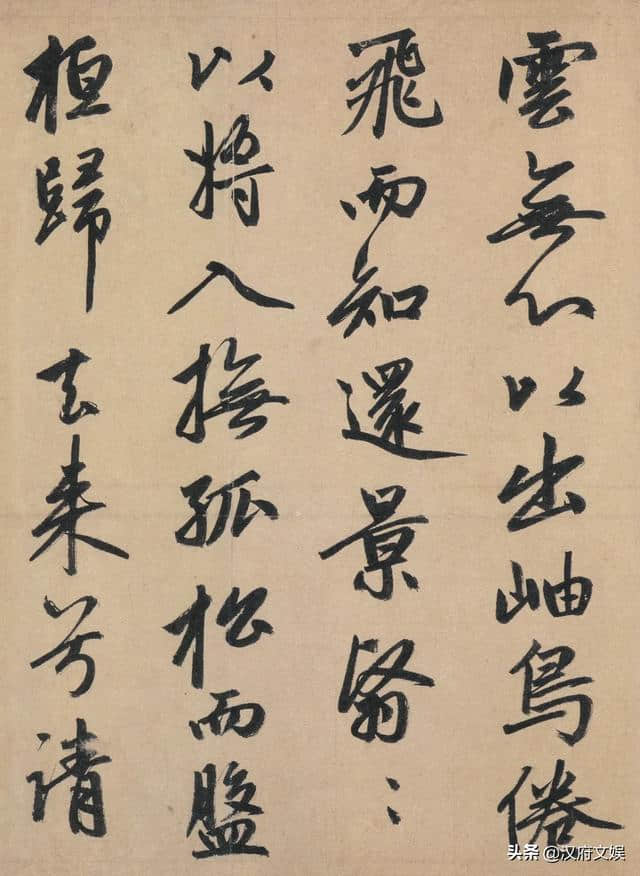 雲無心以出岫鳥倦
飛而知還景翳〻
以將入撫孤松而盤
桓歸去来兮請
头条@汉府文娱